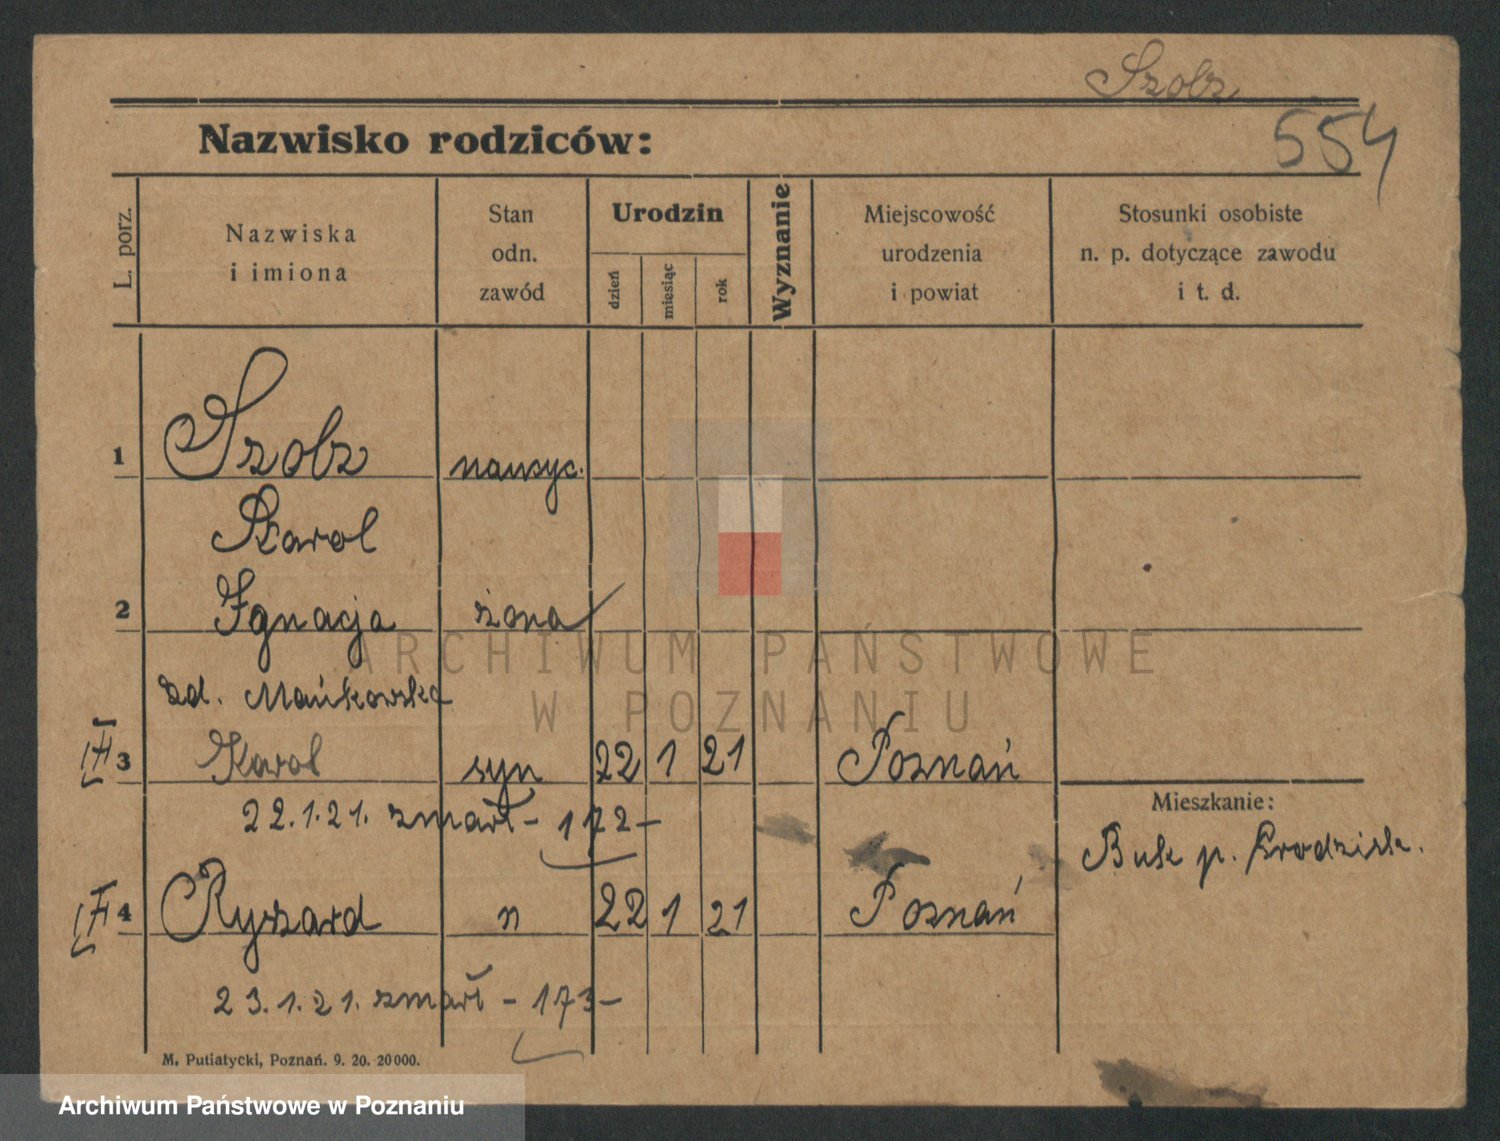 Szolz
554
Nazwisko rodziców:
L. porz.
Nazwiska
i imiona
Stan
odn.
zawód
Urodzin
dzień
miesiąc
rok
Wyznanie
Miejscowość
urodzenia
i powiat
Stosunki osobiste
n. p. dotyczące zawodu
i t. d.
1 Szolz naucyc.
Karol
2 Ignacja żona
ARCHIWUM PAŃSTWOWE
W POZNANIU
zd. Mańkowska
3 Karol syn 22 1 21 Poznań
22.1.21. zmarł - 172 -
Mieszkanie:
Buk p. Grodzisk.
4 Ryszard n 22 1 21 Poznań
23.1.21. zmarł - 173 -
M. Putiatycki, Poznań. 9. 20. 20000.
Archiwum Państwowe w Poznaniu